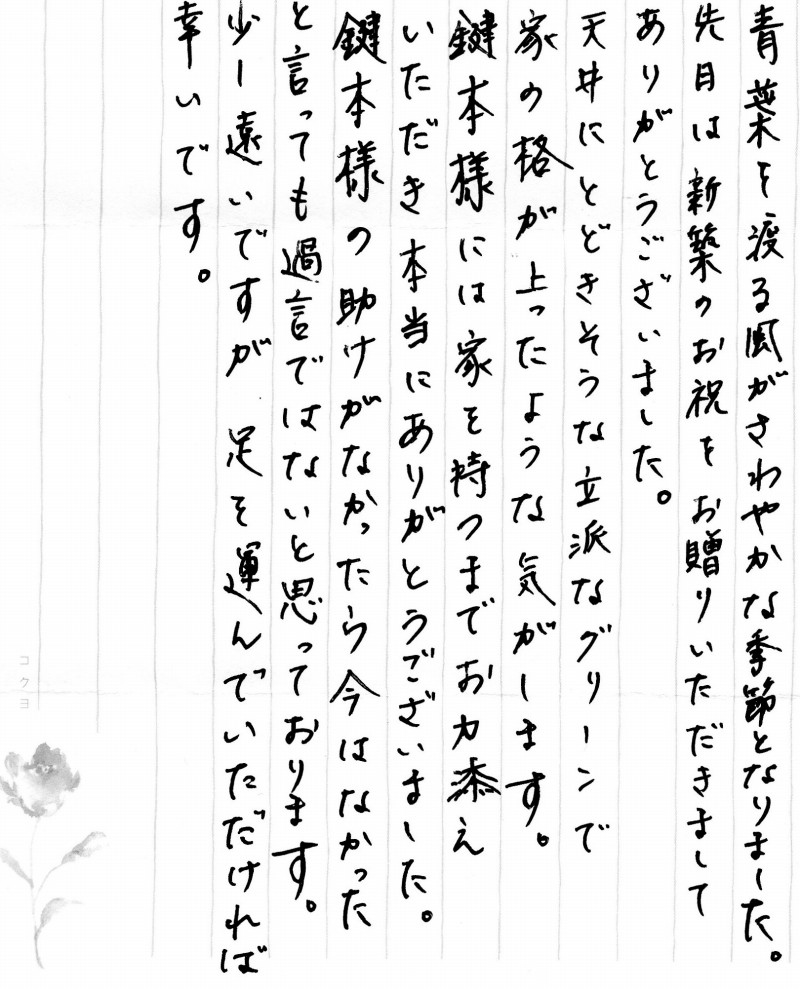 青葉を渡る風がさわやかな季節となりました。
先日は新築のお祝をお贈りいただきまして
ありがとうございました。
天井にとどきそうな立派なグリーンで
家の格が上ったような気がします。
鍵本様には家を持つまでお力添え
いただき本当にありがとうございました。
鍵本様の助けがなかったら今はなかった
と言っても過言ではないと思っております。
少し遠いですが 足を運んでいただければ
幸いです。
コクヨ